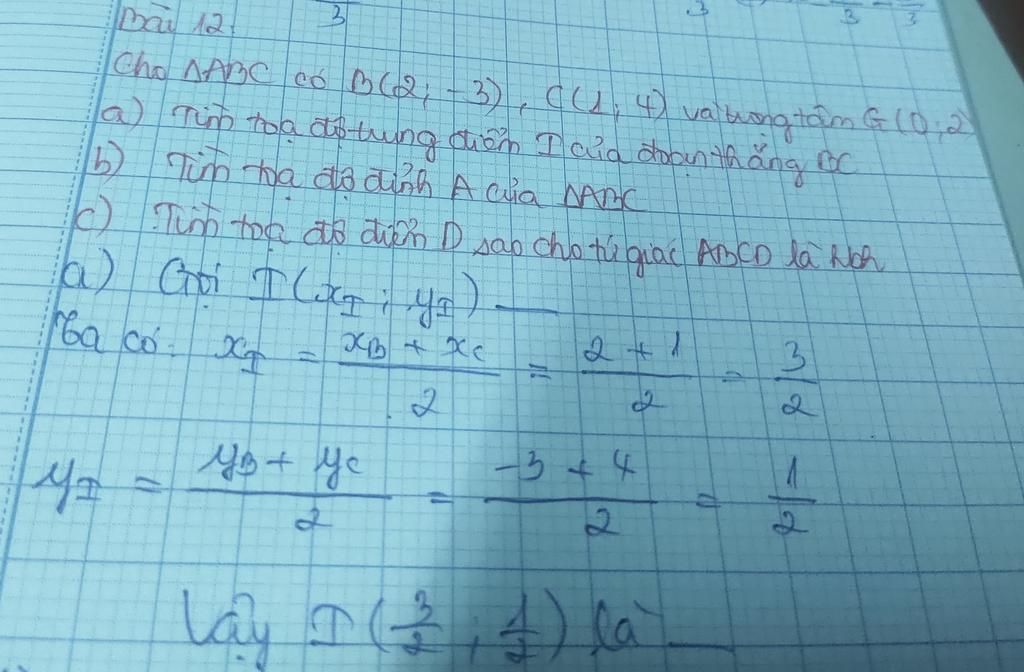 Bài 12:
Cho ΔABC có B(2; -3), C(1; 4) và trọng tâm G(0; 2)
a) Tính toạ độ trung điểm I của đoạn thẳng BC
b) Tìm toạ độ đỉnh A của ΔABC
c) Tính toạ độ điểm D sao cho tứ giác ABCD là hbh
a) Gọi I(x_I ; y_I)
Ta có: x_I = (x_B + x_C)/2 = (2 + 1)/2 = 3/2
y_I = (y_B + y_C)/2 = (-3 + 4)/2 = 1/2
Vậy I(3/2 ; 1/2) là